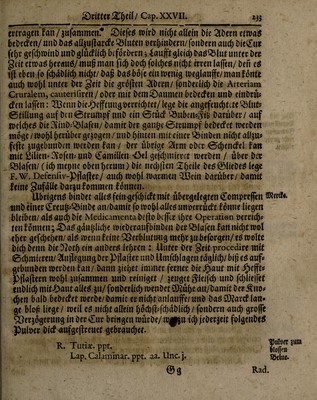 Dritter Theil / Cap. XXVII. 235
ertragen kan / zusammen." Dieses wird nicht allein die Adern etwas
bedecken / und das allzustarcke Bluten verhindern / sondern auch die Cur
sehr geschwind und glücklich befördern; Laufft gleich das Blut unter der
Zeit etwas heraus / muß man sich doch solches nicht irren lassen / denn es
ist eben so schädlich nicht / daß das böse ein wenig weglauffe / man könte
auch wohl unter der Zeit die grösten Adern / sonderlich die Arteriam
Cruralem, cauterisiren / oder mit dem Daumen bedecken und eindrü-
cken lassen: Wenn die Hefftung verrichtet / lege die angefeuchtete Blut-
Stillung auf den Strumpff und ein Stück Buben-Filz darüber / auf
welches die Rind-Blasen / damit der gantze Strumpff bedecket werden
möge / wohl herüber gezogen / und hinten mit einer Binden nicht allzu-
feste zugebunden werden kan / der übrige Arm oder Schenckel kan
mit Lilien- Rosen- und Camillen-Oel geschmieret werden / über die
Blasen / (ich meyne oben herum) die nechsten Theile des Gliedes lege
F. W. Defensiv-Pflaster / auch wohl warmen Wein darüber / damit
keine Zufälle darzu kommen können.
Übrigens binder alles sein geschickt mit übergelegten Compressen
und einer Creutz-Binde an / damit so wohl alles unverruckt könne liegen
bleiben / als auch die Medicamenta desto besser ihre Operation verrich-
ten können; Das gäntzliche wiederaufbinden der Blasen kan nicht wol
eher geschehen / als wenn keine Verblutung mehr zu besorgen / es wolte
dich denn die Noth ein anders lehren: Unter der Zeit procedire mit
Schmieren / Auflegung der Pflaster und Umschlagen täglich / biß es auf-
gebunden werden kan / dann ziehet immer ferner die Haut mit Hefft-
Pflastern wohl zusammen und reiniget / zeuget Fleisch und schliesset
endlich mit Haut alles zu / sonderlich wendet Mühe an / damit der Kno-
chen bald bedecket werde / damit er nicht anlauffe / und das Marck lan-
ge bloß liege / weil es nicht allein höchst-schädlich / sondern auch grosse
Verzögerung in der Cur bringen würde / wozu ich jederzeit folgendes
Pulver dick aufgestreuet gebrauchet.
Mercks.
R. Tutiæ. ppt.
Lap. Calaminar. ppt. aa. Unc. j.
Pulver zum
blossen
Beine.
Gg
Rad.